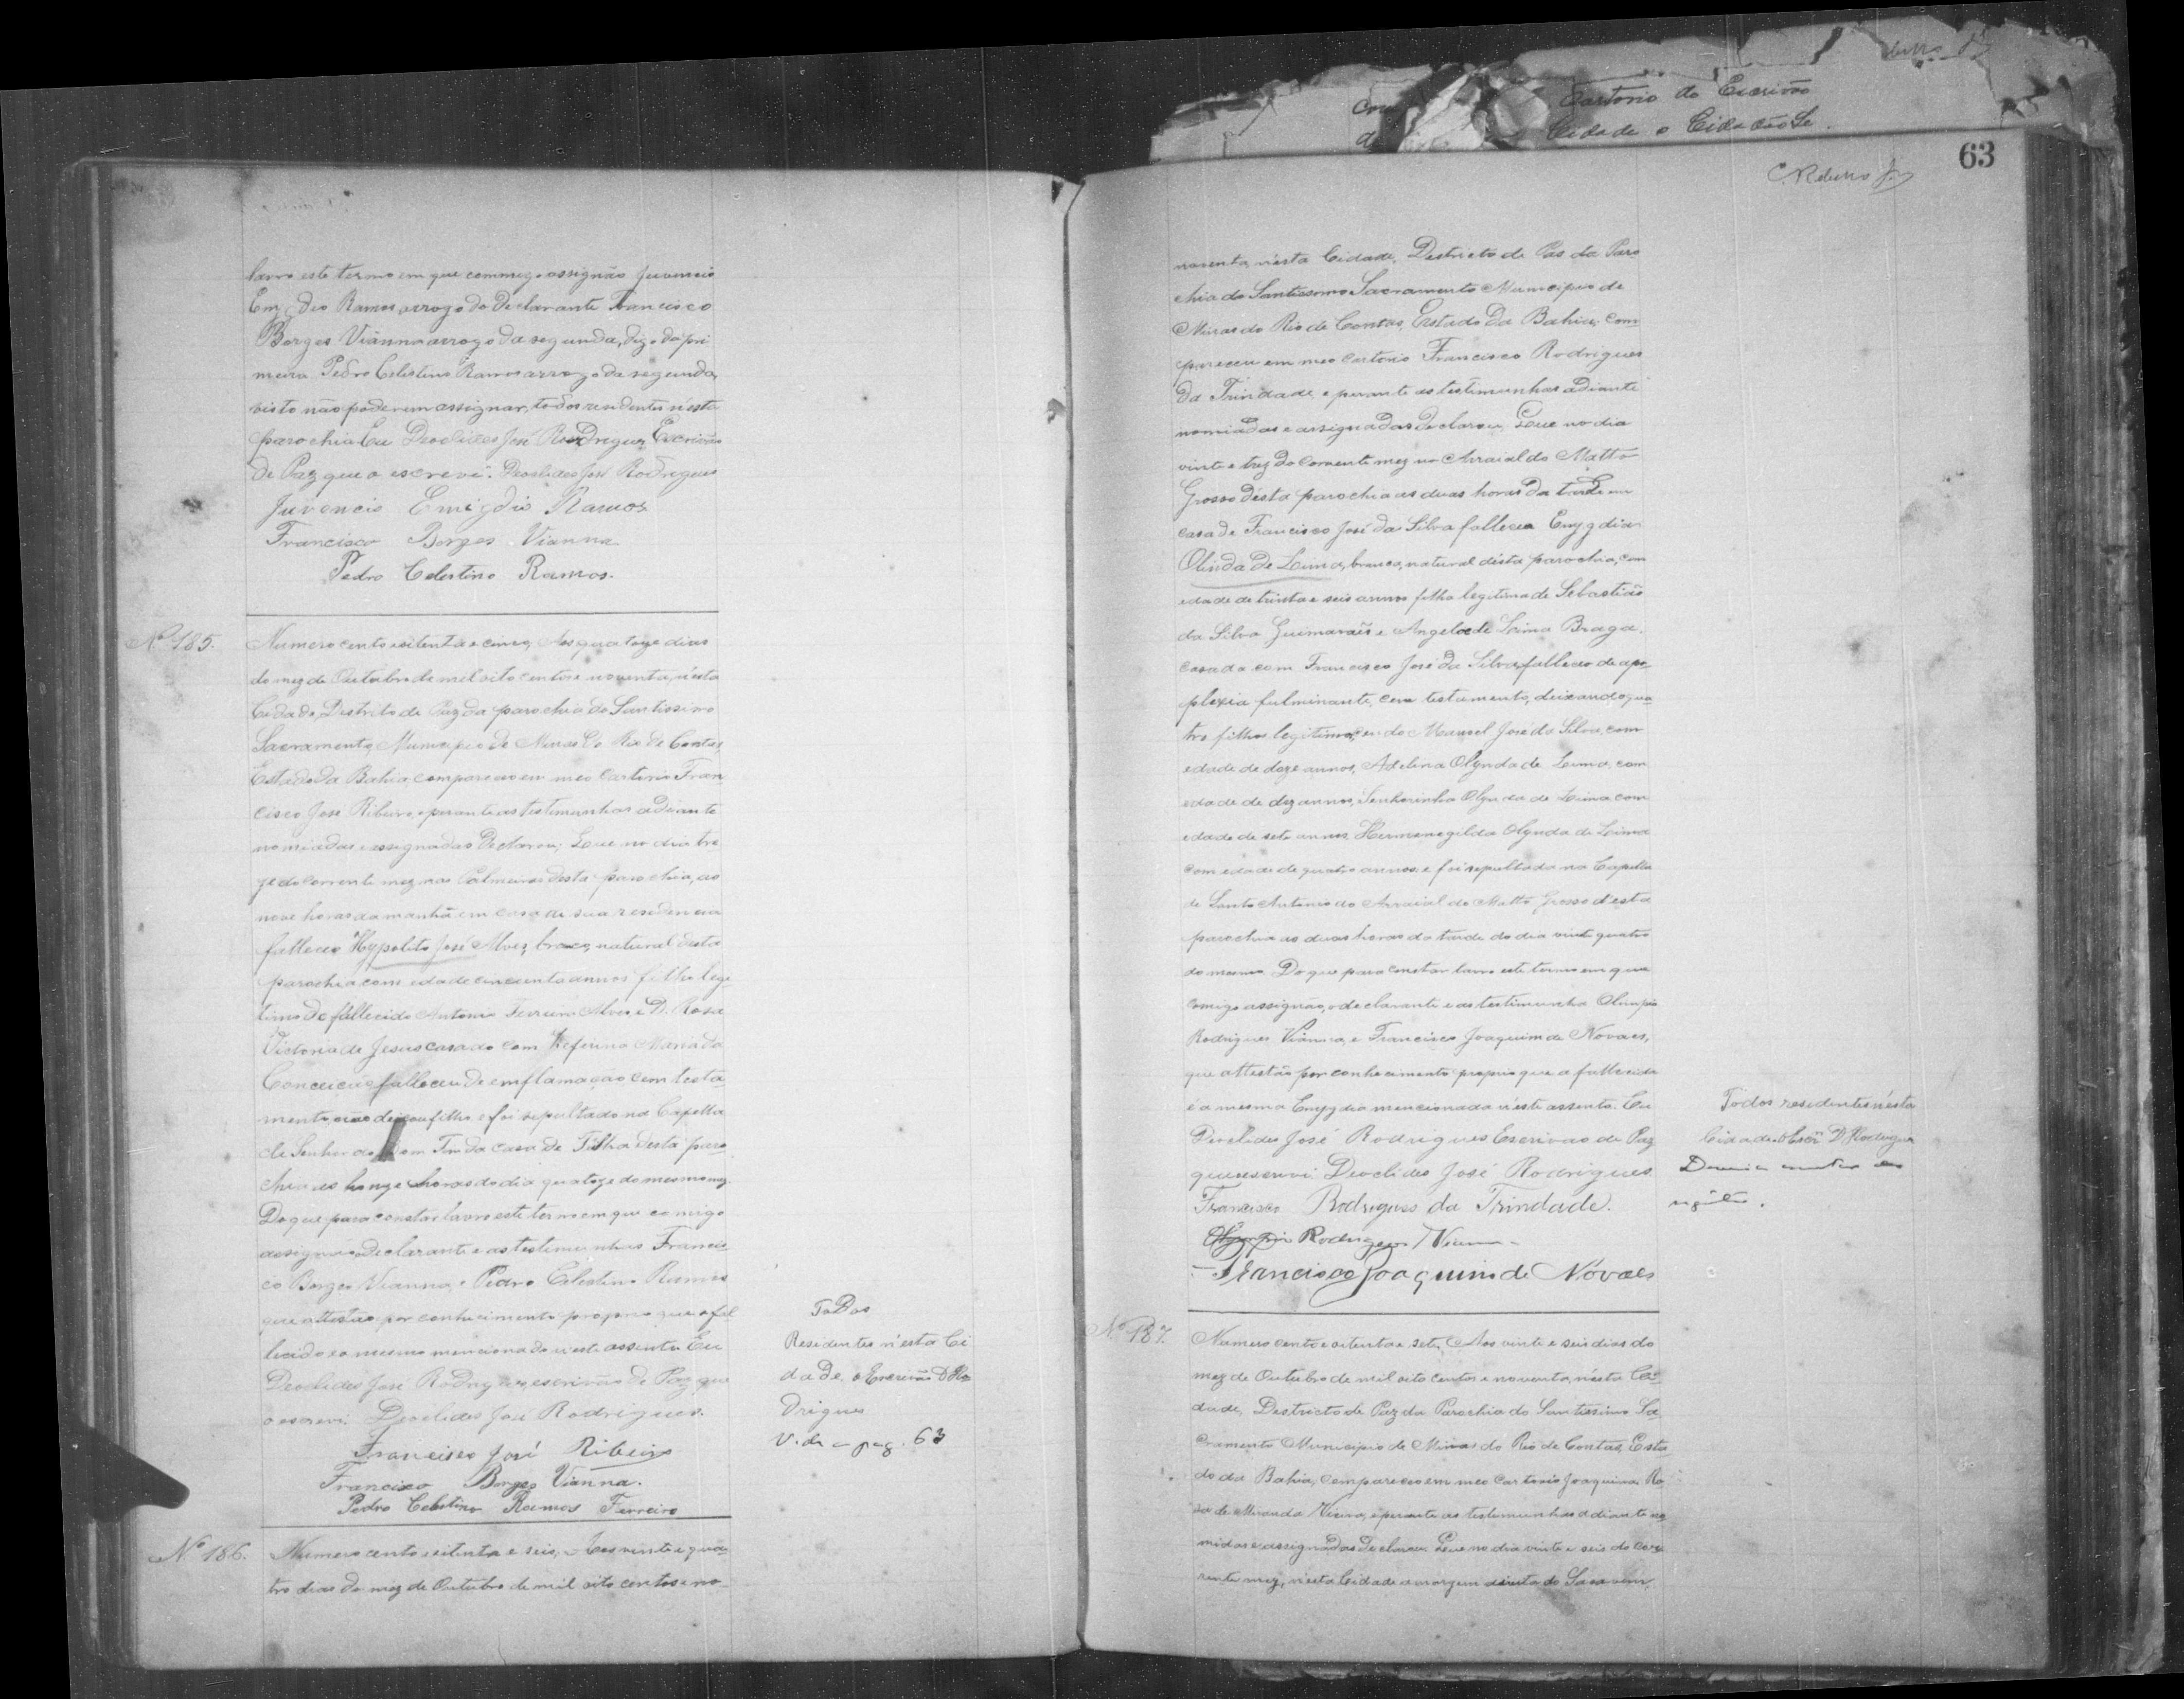 Cartorio do Escrivão
Cidade o Cidadão
63
C. Ribeiro Jr
lavro este termo em que commigo assignão Juvencio
Emygdio Ramos arrogo do Declarante Francisco
Borges Vianna arrogo da segunda, digo da pri
meira Pedro Celestino Ramos arrogo da segunda,
visto não poderem assignar, todos residentes n'esta
parochia. Eu Deoclides José Rodrigues Escrivão
de Paz que o escrevi. Deoclides José Rodrigues
Juvencio Emigdio Ramos
Francisco Borges Vianna
Pedro Celestino Ramos.
Nº 185.
Numero cento e oitenta e cinco, Aos quatorze dias
do mez de Outubro de mil oito centos e noventa, n'esta
Cidade, Distrito de Paz da parochia do Santissimo
Sacramento, Municipio de Minas do Rio de Contas
Estado da Bahia, compareceo em meo Cartorio Fran
cisco José Ribeiro, e perante as testimunhas adiante
nomiadas e assignadas Declarou; Que no dia tre
ze do corrente mez nas Palmeiras desta parochia, as
nove horas da manhã em casa de sua residencia
falleceo Hypolito José Alves, branco, natural desta
parochia com idade cincoenta annos filho legi
timo de fallecido Antonio Ferreira Alves, e D. Rosa
Victoria de Jesus casado com Zeferina Maria da
Conceicão falleceu de emflamação cem testa
mento, não deixou filho e foi sepultado na Capella
de Senhor do Bom Fim da casa de Telha desta paro
chia as honze horas do dia quatoze do mesmo mez.
Do que para constar lavro este termo em que comigo
assignão o Declarante e as testimunhas Francis
co Borges Vianna, e Pedro Celestino Ramos
que attestão por conhecimento proprio que o fal
lecido e o mesmo mencionado n'este assento. Eu
Deoclides José Rodrigues, escrivão de Paz que
o escrevi. Deoclides José Rodrigues.
Francisco José Ribeiro
Francisco Borges Vianna.
Pedro Celestino Ramos Ferreira
Todos
Residentes n'esta Ci
dade. o Escrivão D. Ro
drigues
V. de a pag. 63
Nº 186.
Numero cento e oitenta e seis, Aos vinte e qua
tro dias do mez de Outubro de mil oito centos e no
noventa, n'esta Cidade, Destricto de Pas da Paro
chia do Santissimo Sacramento Municipio de
Minas do Rio de Contas, Estado da Bahia, com
pareceu em meo Cartorio Francisco Rodrigues
da Trindade, e perante as testimunhas adiante
nomiadas e assignadas declarou: Que no dia
vinte e trez do corrente mez no Arraial do Matto
Grosso d'esta parochia as duas horas da tarde em
casa de Francisco José da Silva falleceu Emygdia
Olinda de Lima, branca, natural d'esta parochia, com
edade de trinta e seis annos filha legitima de Sebastião
da Silva Guimarães e Angela de Lima Braga.
casada com Francisco José da Silva, falleceo de apo
plexia fulminante, cem testamento, deixando qua
tro filhos legitimos, sendo Manoel José da Silva, com
edade de doze annos, Adelina Olynda de Lima, com
edade de dez annos, Senhorinha Olynda de Lima com
edade de sete annos, Hermenegilda Olynda de Lima
com edade de quatro annos e foi sepultada na Capella
de Santo Antonio do Arraial do Matto Grosso d'esta
parochia as duas horas da tarde do dia vinte quatro
do mesmo. Do que para constar lavro este termo em que
comigo assignão, o declarante e as testimunha Olimpio
Rodrigues Vianna, e Francisco Joaquim de Novaes,
que attestão por conhecimento proprio que a fallecida
é a mesma Emygdia mencionada n'este assento. Eu
Deoclides José Rodrigues Escrivão de Paz
que escrevi. Deoclides José Rodrigues
Francisco Rodrigues da Trindade.
Olympio Rodrigues Vianna
Francisco Joaquim de Nóvaes
Todos residentes n'esta
Cidade. o Escr. D. Rodrigues
Nº 187.
Numero cento e oitenta e sete, Aos vinte e seis dias do
mez de Outubro de mil oito centos e noventa, n'esta Ci
dade, Destricto de Paz da Parochia do Santissimo Sa
cramento Municipio de Minas do Rio de Contas, Esta
do da Bahia, compareceo em meo Cartorio Joaquina Ro
sa de Miranda Vieira, e perante as testimunhas adiante no
miadas e assignadas declarou. Que no dia vinte e seis do cor
rente mez, n'esta Cidade a margem direita do